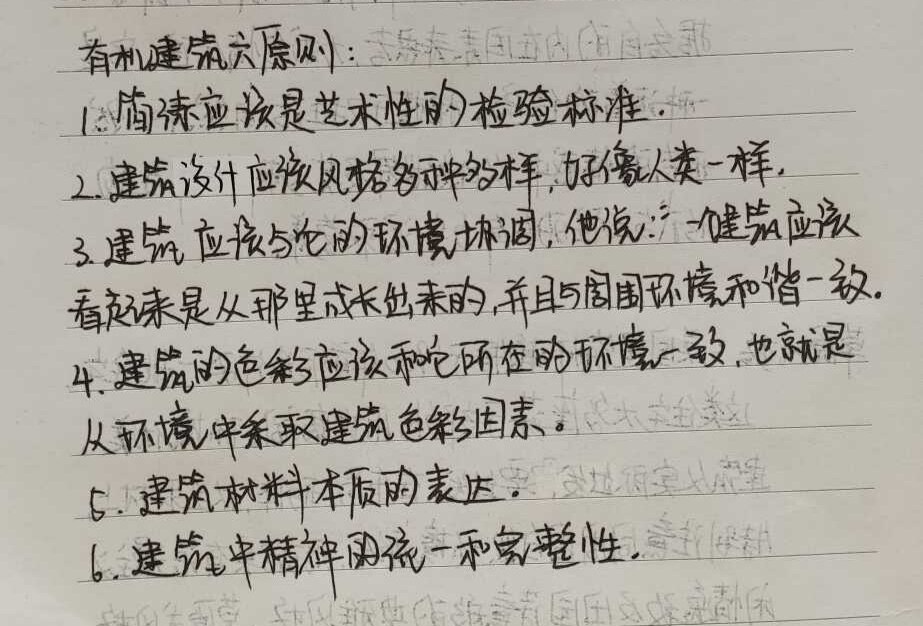 有机建筑六原则：
1. 简练应该是艺术性的检验标准.
2. 建筑设计应该风格多种多样,好像人类一样.
3. 建筑应该与它的环境协调,他说:"一个建筑应该
看起来是从那里成长出来的,并且与周围环境和谐一致.
4. 建筑的色彩应该和它所在的环境一致,也就是
从环境中采取建筑色彩因素。
5. 建筑材料本质的表达.
6. 建筑中精神的统一和完整性.